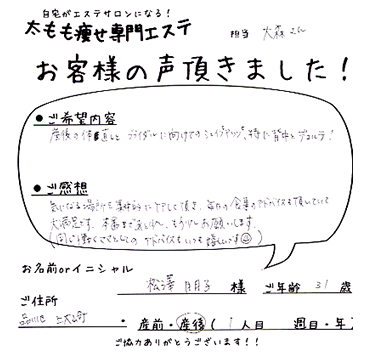 自宅がエステサロンになる！
太もも痩せ専門エステ
担当 大森さん
お客様の声頂きました！
●ご希望内容
産後の体重戻しと ブライダルに向けてのシェイプアップ、特に背中とデコルテ！
●ご感想
気になる場所を集中的にケアして頂き、毎日の食事のアドバイスも頂いていて
大満足です。本番まであと少し、もう少しお願いします。
アドバイスもいつも嬉しいです
お名前orイニシャル
様 ご年齢 31 歳
ご住所
品川区
・産前・産後（1人目 週目・年）
ご協力ありがとうございます！！